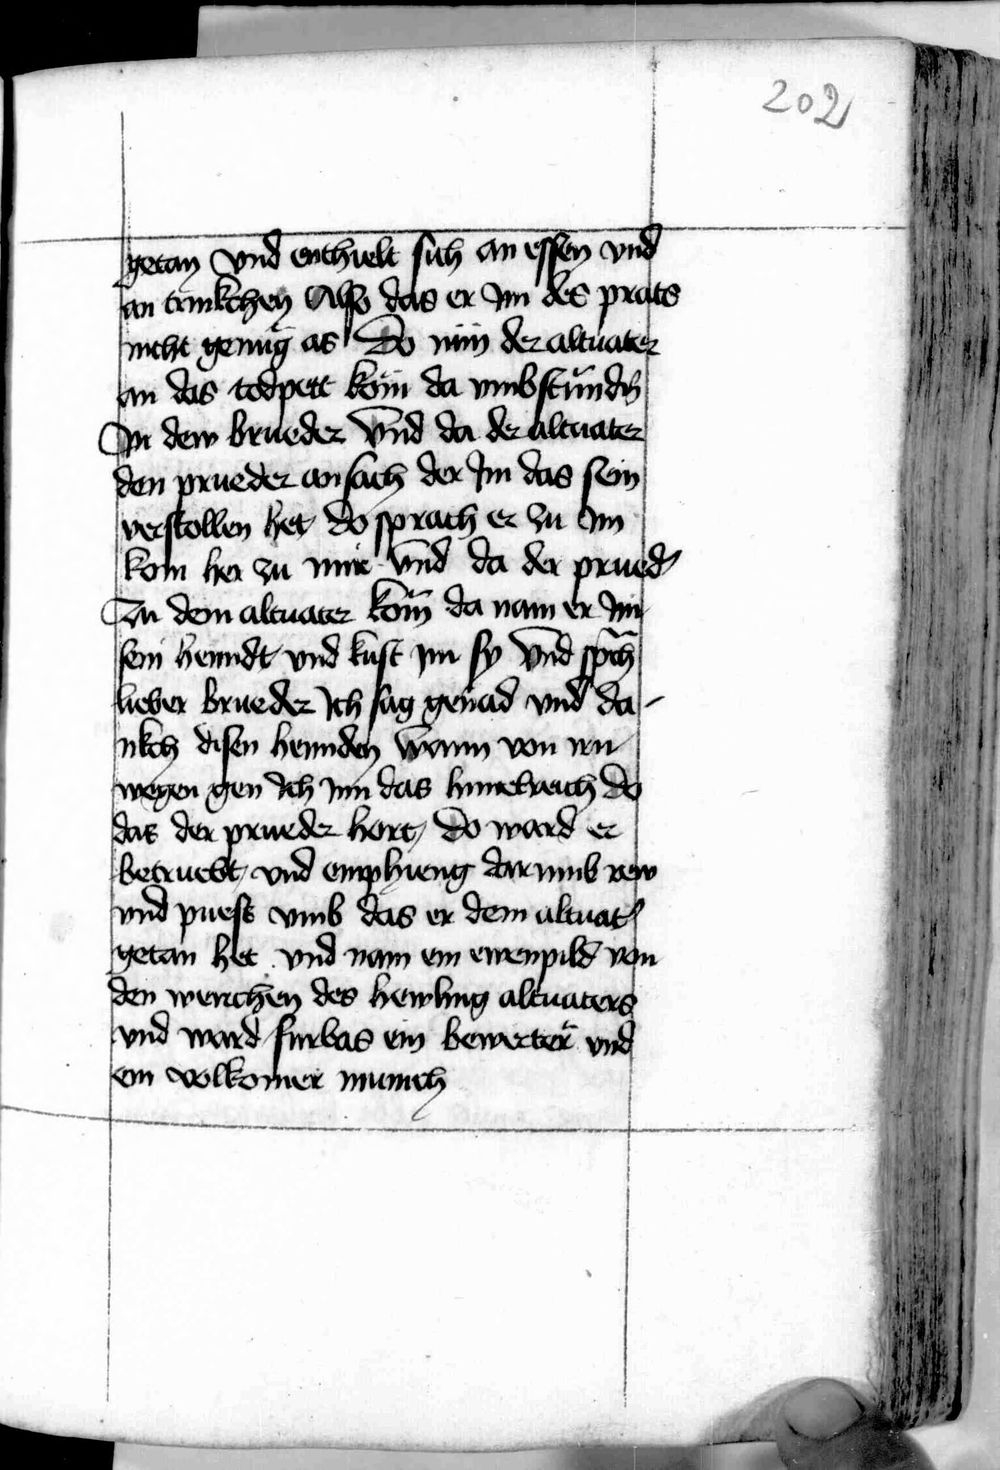 202
getan vnd enthielt sich an essen vnd
an trinkchen Also das er Im des prats
nicht genug as Do nün der altuater
an das todpett köm da vmbstündn
In dew brueder Vnd da der altuater
den prueder ansach der Im das sein
verstollen het do sprach er zu Im
kom her zu mir Vnd da der prued
Zu dem altuater köm da nam er Im
sein henndt vnd kust im sy Vnd sprach
lieber brueder Ich sag genad vnd da-
nkch disen hennden Wann von irn
wegen gen Ich Inn das himelreich do
das der prueder hort do ward er
betruebt vnd emphieng darumb rew
vnd puess vmb das er dem altuat
getan het vnd nam ein ewenpild von
den werchen des hewling altuaters
vnd ward furbas ein bewerter vnd
ein volkomer munich